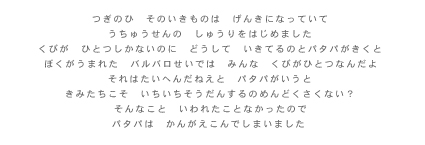 つぎのひ　そのいきものは　げんきになっていて
うちゅうせんの　しゅうりをはじめました
くびが　ひとつしかないのに　どうして　いきてるのとパタパがきくと
ぼくがうまれた　バルバロせいでは　みんな　くびがひとつなんだよ
それはたいへんだねえと　パタパがいうと
きみたちこそ　いちいちそうだんするのめんどくさくない？
そんなこと　いわれたことなかったので
パタパは　かんがえこんでしまいました